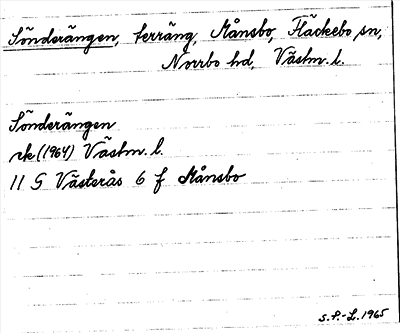 Sönderängen, terräng, Månsbo, Fläckebo sn,
Norrbo hd, Västm. l.
Sönderängen
ek (1964) Västm. l.
11 G Västerås 6 f Månsbo
S.P.-L. 1965